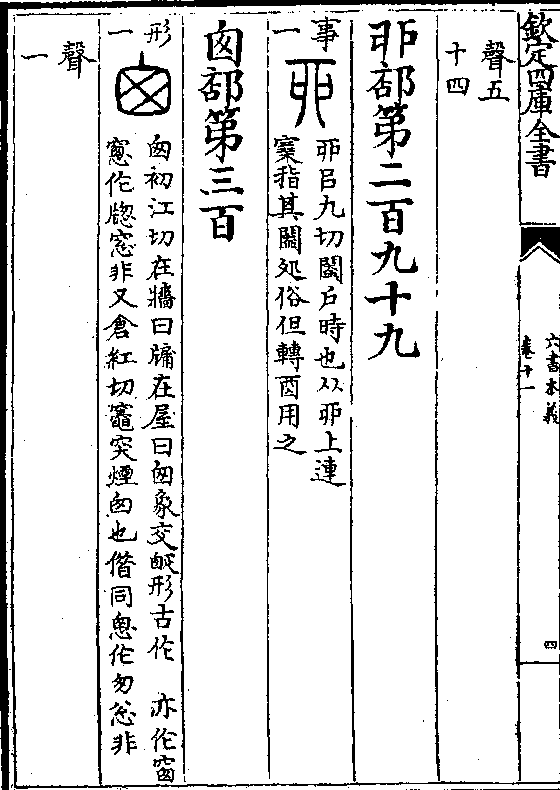 欽定四庫全書
六書本義
卷十一
四
聲五
十四
戼部第二百九十九
事一
丣㠯九切闔戶時也从戼上連
指其闔処俗但轉酉用之
囪部第三百
形一
囪初江切在牆曰牖在屋曰囪象交疏形古作 亦作窗
窻作牕窓非又倉紅切竈突煙囪也偕同悤作匆怱非
聲一